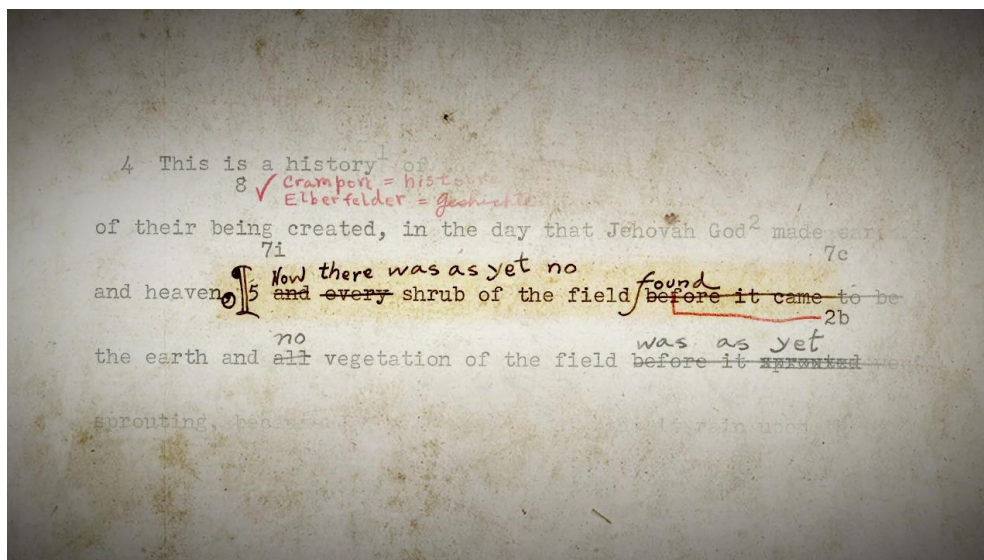 4 This is a history1 of
8 ✓ Crampon = histoire
Elberfelder = Geshichte
of their being created, in the day that Jehovah God2 made ear
7i 7c
Now there was as yet no found
and heaven. ¶5 and every shrub of the field before it came to be
2b
no was as yet
the earth and all vegetation of the field before it sprouted
sprouting, rain upon